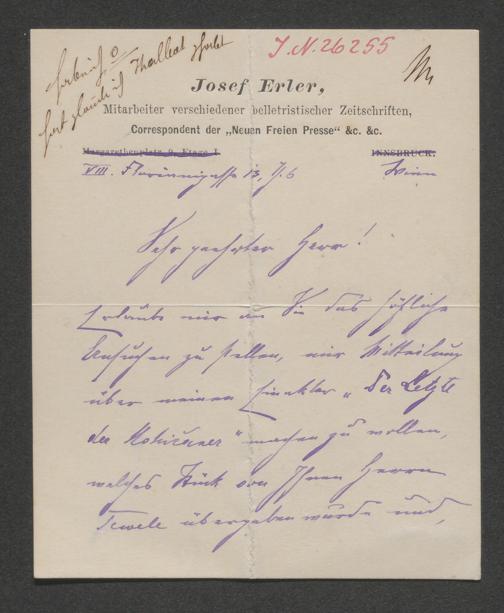 J. N. 26255
Josef Erler,
Mitarbeiter verschiedener belletristischer Zeitschriften,
Correspondent der „Neuen Freien Presse“ &c. &c.
Margarethenplatz 9, Etage I. INNSBRUCK.
VIII. Floriannigasse 13, Wien
Sehr geehrter Herr!
Erlaube mir an Sie das höfliche
Ansuchen zu stellen, mir Mitteilung
über meinen Einakter „Der Letzte
der Mohicaner“ machen zu wollen,
welches Stück von Ihnen Herrn
Tewele übergeben wurde und,